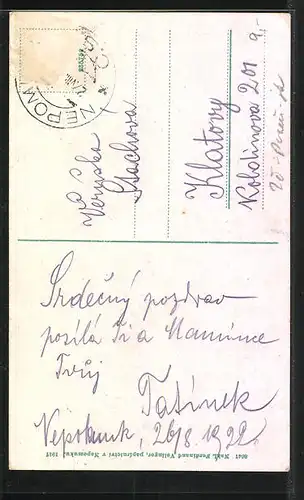 NEPOM
Veruška
Stachova
Klatovy
Koldinova 201
9,-
Srdečný pozdrav
posílá Ti a Mamince
Tvůj
Tatínek
Nepomuk, 26/8. 1922
Nakl. Ferdinand Vellinger, papírnictví v Nepomuku. 191